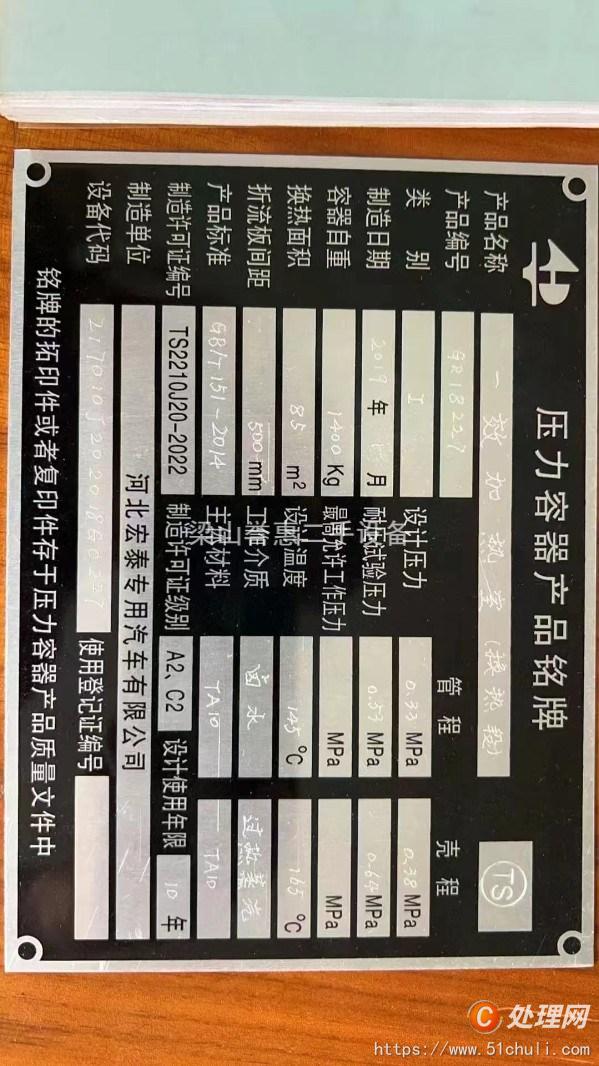 压力容器产品铭牌
TS
产品名称 一效加热室(换热段)
产品编号 GR18227
管程 壳程
类别 I 设计压力 0.33 MPa 0.38 MPa
制造日期 2019年 月 耐压试验压力 0.53 MPa 0.64 MPa
容器自重 1400 Kg 最高允许工作压力 MPa MPa
换热面积 85 m² 设计温度 145 ℃ 165 ℃
折流板间距 500 mm 工作介质 卤水 过热蒸汽
产品标准 GB/T 151-2014 主体材料 TA10 TA10
制造许可证编号 TS2210J20-2022 制造许可证级别 A2、C2 设计使用年限 10 年
制造单位 河北宏泰专用汽车有限公司
设备代码 使用登记证编号
铭牌的拓印件或者复印件存于压力容器产品质量文件中
C处理网
https://www.51chuli.com